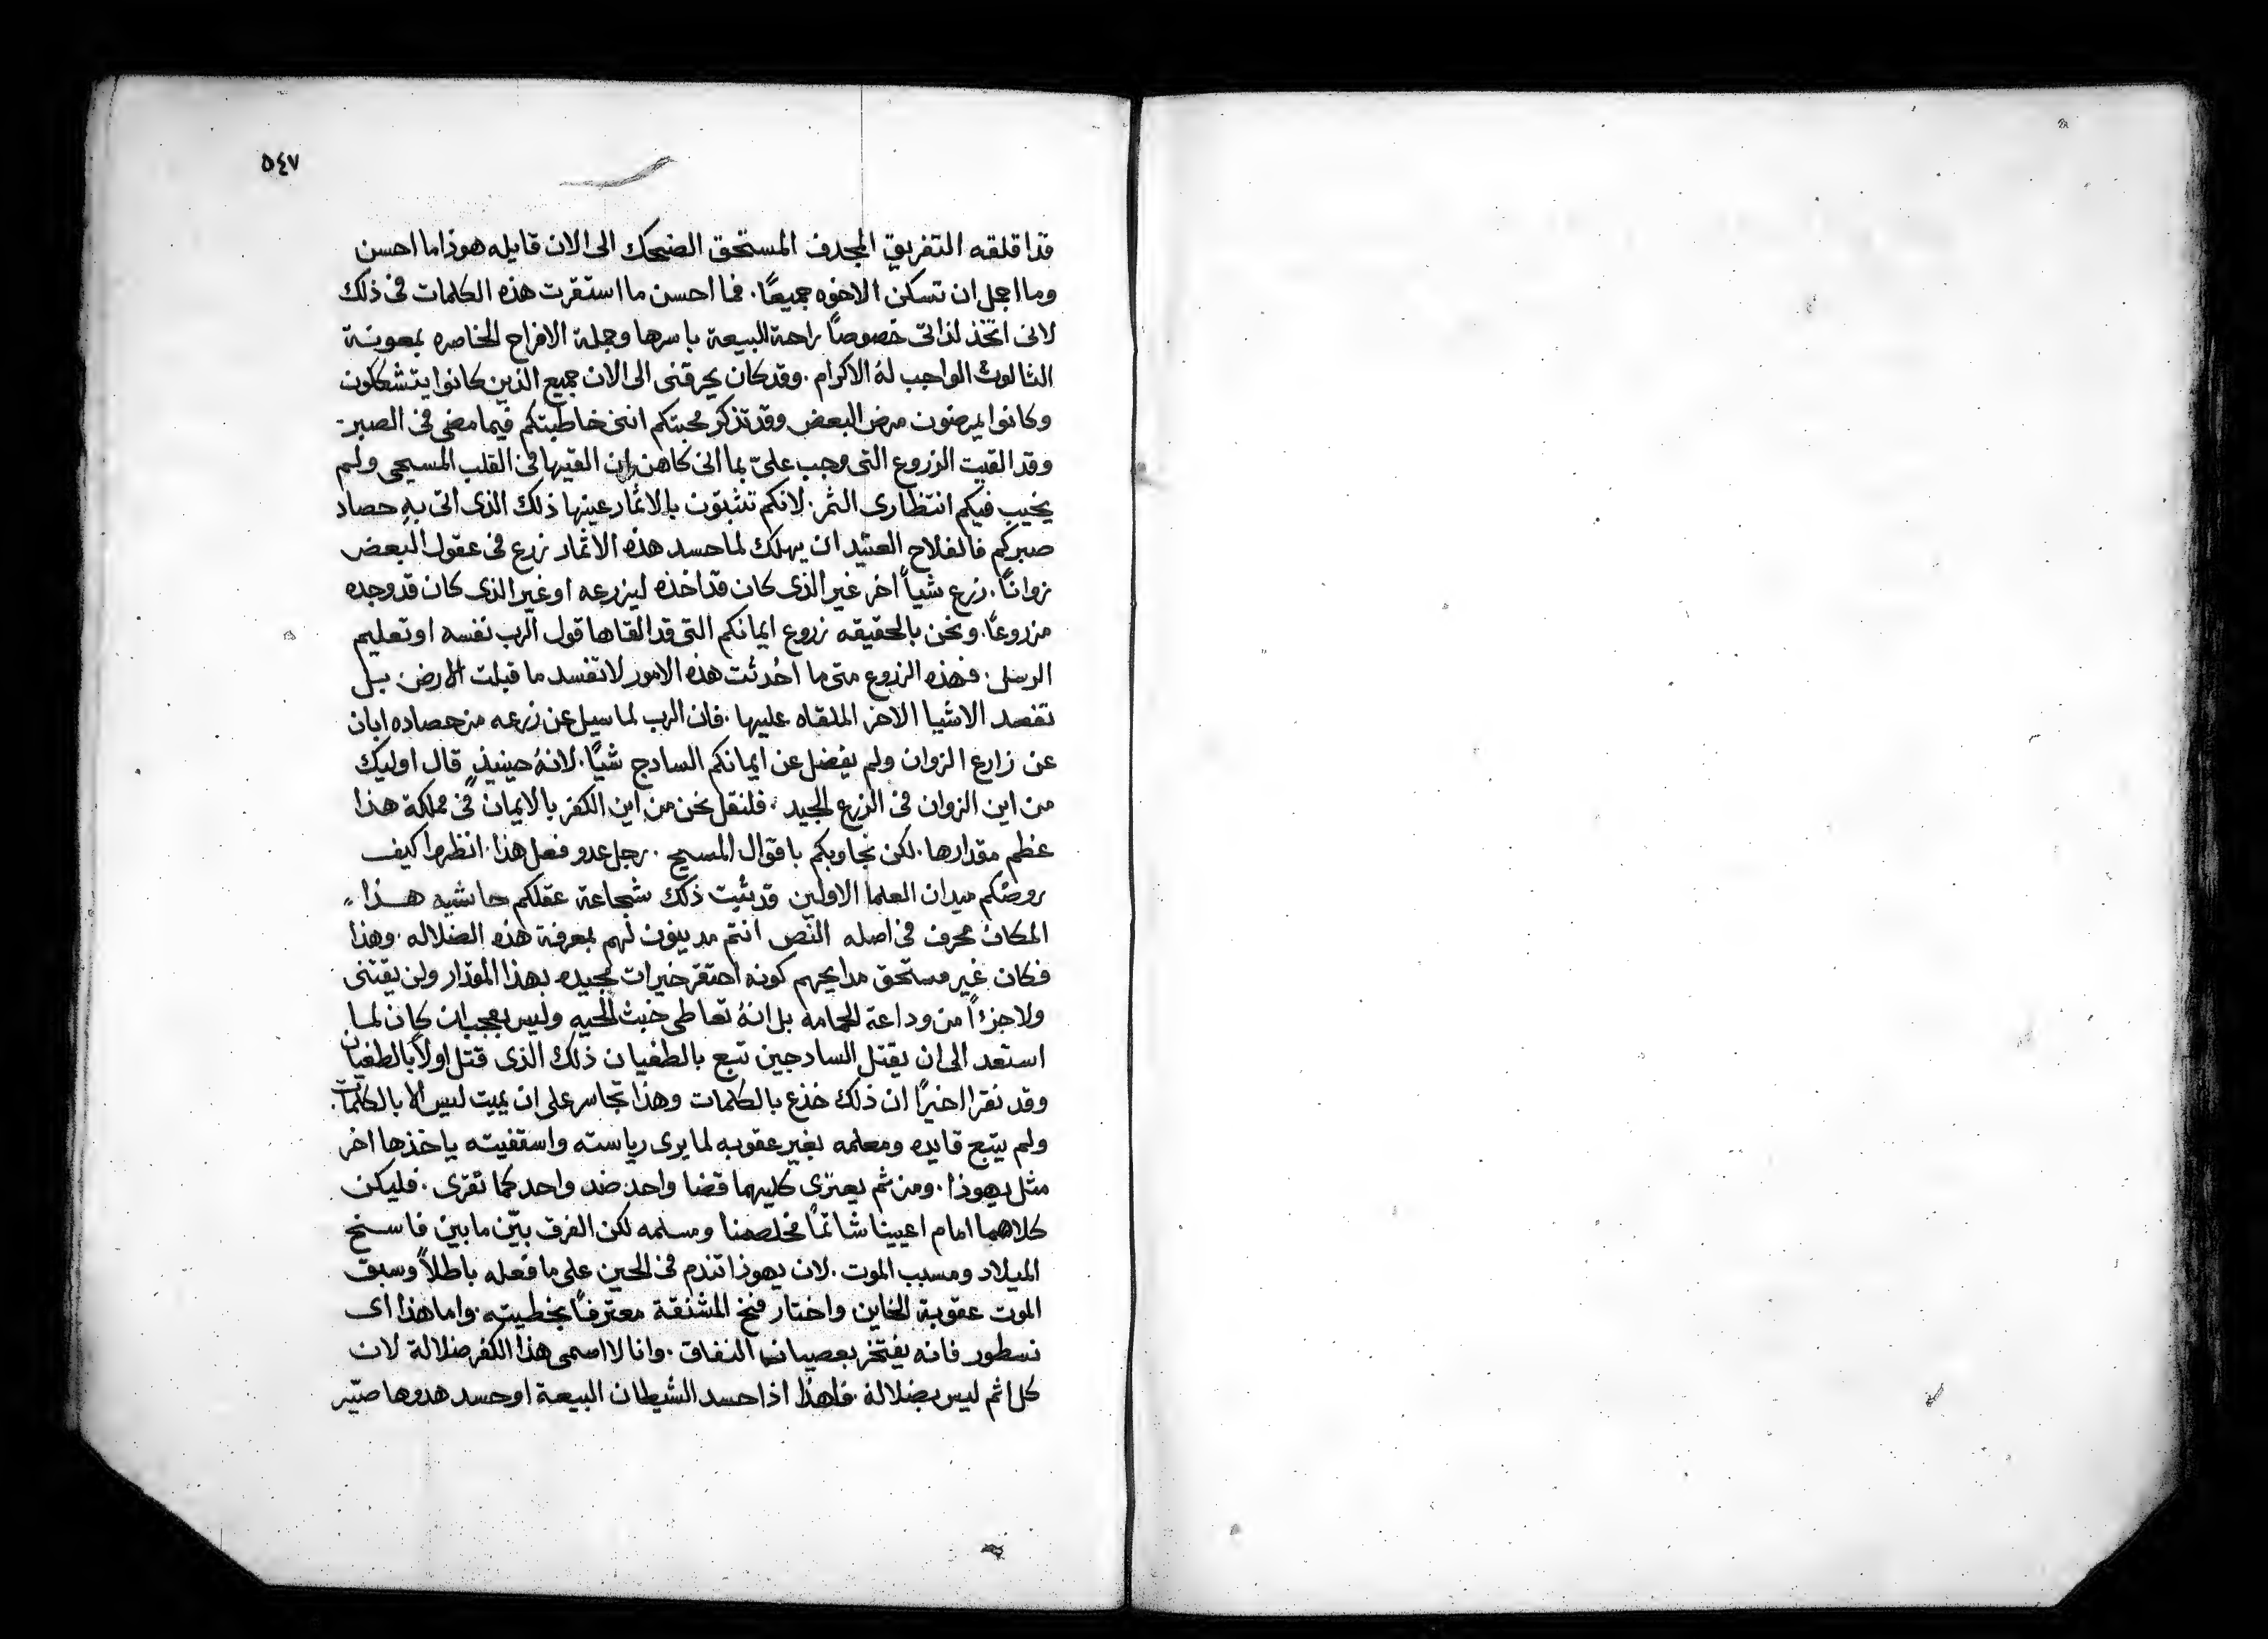 ٥٤٧
قد اقلقه التفريق المجدف المستحق الضحك الى الان قايله هوذا ما احسن
وما اجمل ان تسكن الاخوه جميعًا. فما احسن ما استقرت هذه الكلمات فى ذلك
لانى اتخذ لذاتى خصوصًا راحة البيعة باسرها وجملة الافراح الخاصه بمعونة
الثالوث الواجب لهُ الاكرام. وقد كان يحرقنى الى الان جميع الذين كانوا يتشككون
وكانوا يمرضون مرض البعض وقد تذكر محبتكم اننى خاطبتكم فيما مضى فى الصبر
وقد القيت الزروع التى وجب علىّ بما انى كاهن ان القيها فى القلب المسيحى ولم
يخيب فيكم انتظارى الثمر. لانكم تثبتون بالاثمار عينها ذلك الذى اتى بهِ حصاد
صبركم فالفلاح العتيد ان يهلك لما حسد هذه الاثمار زرع فى عقول البعض
زوانًا. زرع شياً اخر غير الذى كان قد اخذه ليزرعه او غير الذى كان قد وجده
مزروعًا. ونحن بالحقيقه زروع ايمانكم التى قد القاها قول الرب نفسه او تعليم
الرسل. فهذه الزروع متى ما احُدثت هذه الامور لا تفسد ما قبلت الارض بل
تفصد الاشيا الاخر الملقاه عليها. فان الرب لما سيل عن زرعه من حصاده ابان
عن زارع الزوان ولم يفضل عن ايمانكم السادج شيًا. لانهُ حينيذٍ قال اوليك
من اين الزوان فى الزرع الجيد. فلنقل نحن من اين الكفر بالايمان فى مملكة هذا
عظم مقدارها. لكن نجاوبكم باقوال المسيح. رجل عدو فعل هذا. انظروا كيف
روضكم ميدان العلما الاولين قد يثبت ذلك شجاعة عقلكم حاشيه هذا
المكان محرف فى اصله النص انتم مديونون لهم بمعرفة هذه الضلاله. وهذا
فكان غير مستحق مدايحهم كونه احتقر خيرات مجيده بهذا المقدار ولن يقتنى
ولا جزءًا من وداعة الحمامه بل انهُ تعاطى خبث الحيه وليس بعجب ان كان لما
استعد الى ان يقتل السادجين تبع بالطغيان ذلك الذى قتل اولاً بالطغيان
وقد نقرا اخيرًا ان ذلك خذع بالكلمات وهذا تجاسر على ان يميت ليس الا بالكلمات.
ولم يتبع قايده ومعلمه بغير عقوبه لما يرى رياسته واسقفيته ياخذها اخر
مثل يهوذا. ومن ثم يعتزى كليهما قضا واحد ضد واحد كما تقرى. فليكن
كلاهما امام اعيينا شاتمًا مخلصنا ومسلمه لكن الفرق بيّن ما بين فاسخ
الميلاد ومسبب الموت. لان يهوذا تندم فى الحين على ما فعله باطلاً وسبق
الموت عقوبة الخاين واختار فخ المشنقة معترفًا بخطيته. واما هذا اى
نسطور فانه يفتخر بعصيان النفاق. وانا لا اسمى هذا الكفر ضلالة لان
كل اثم ليس بضلالة. فلهذا اذا حسد الشيطان البيعة او حسد هدوها صيّر